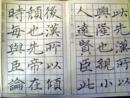 興隆也親小
人遠賢臣此
後漢所以傾
頹也先帝在
時每與臣論